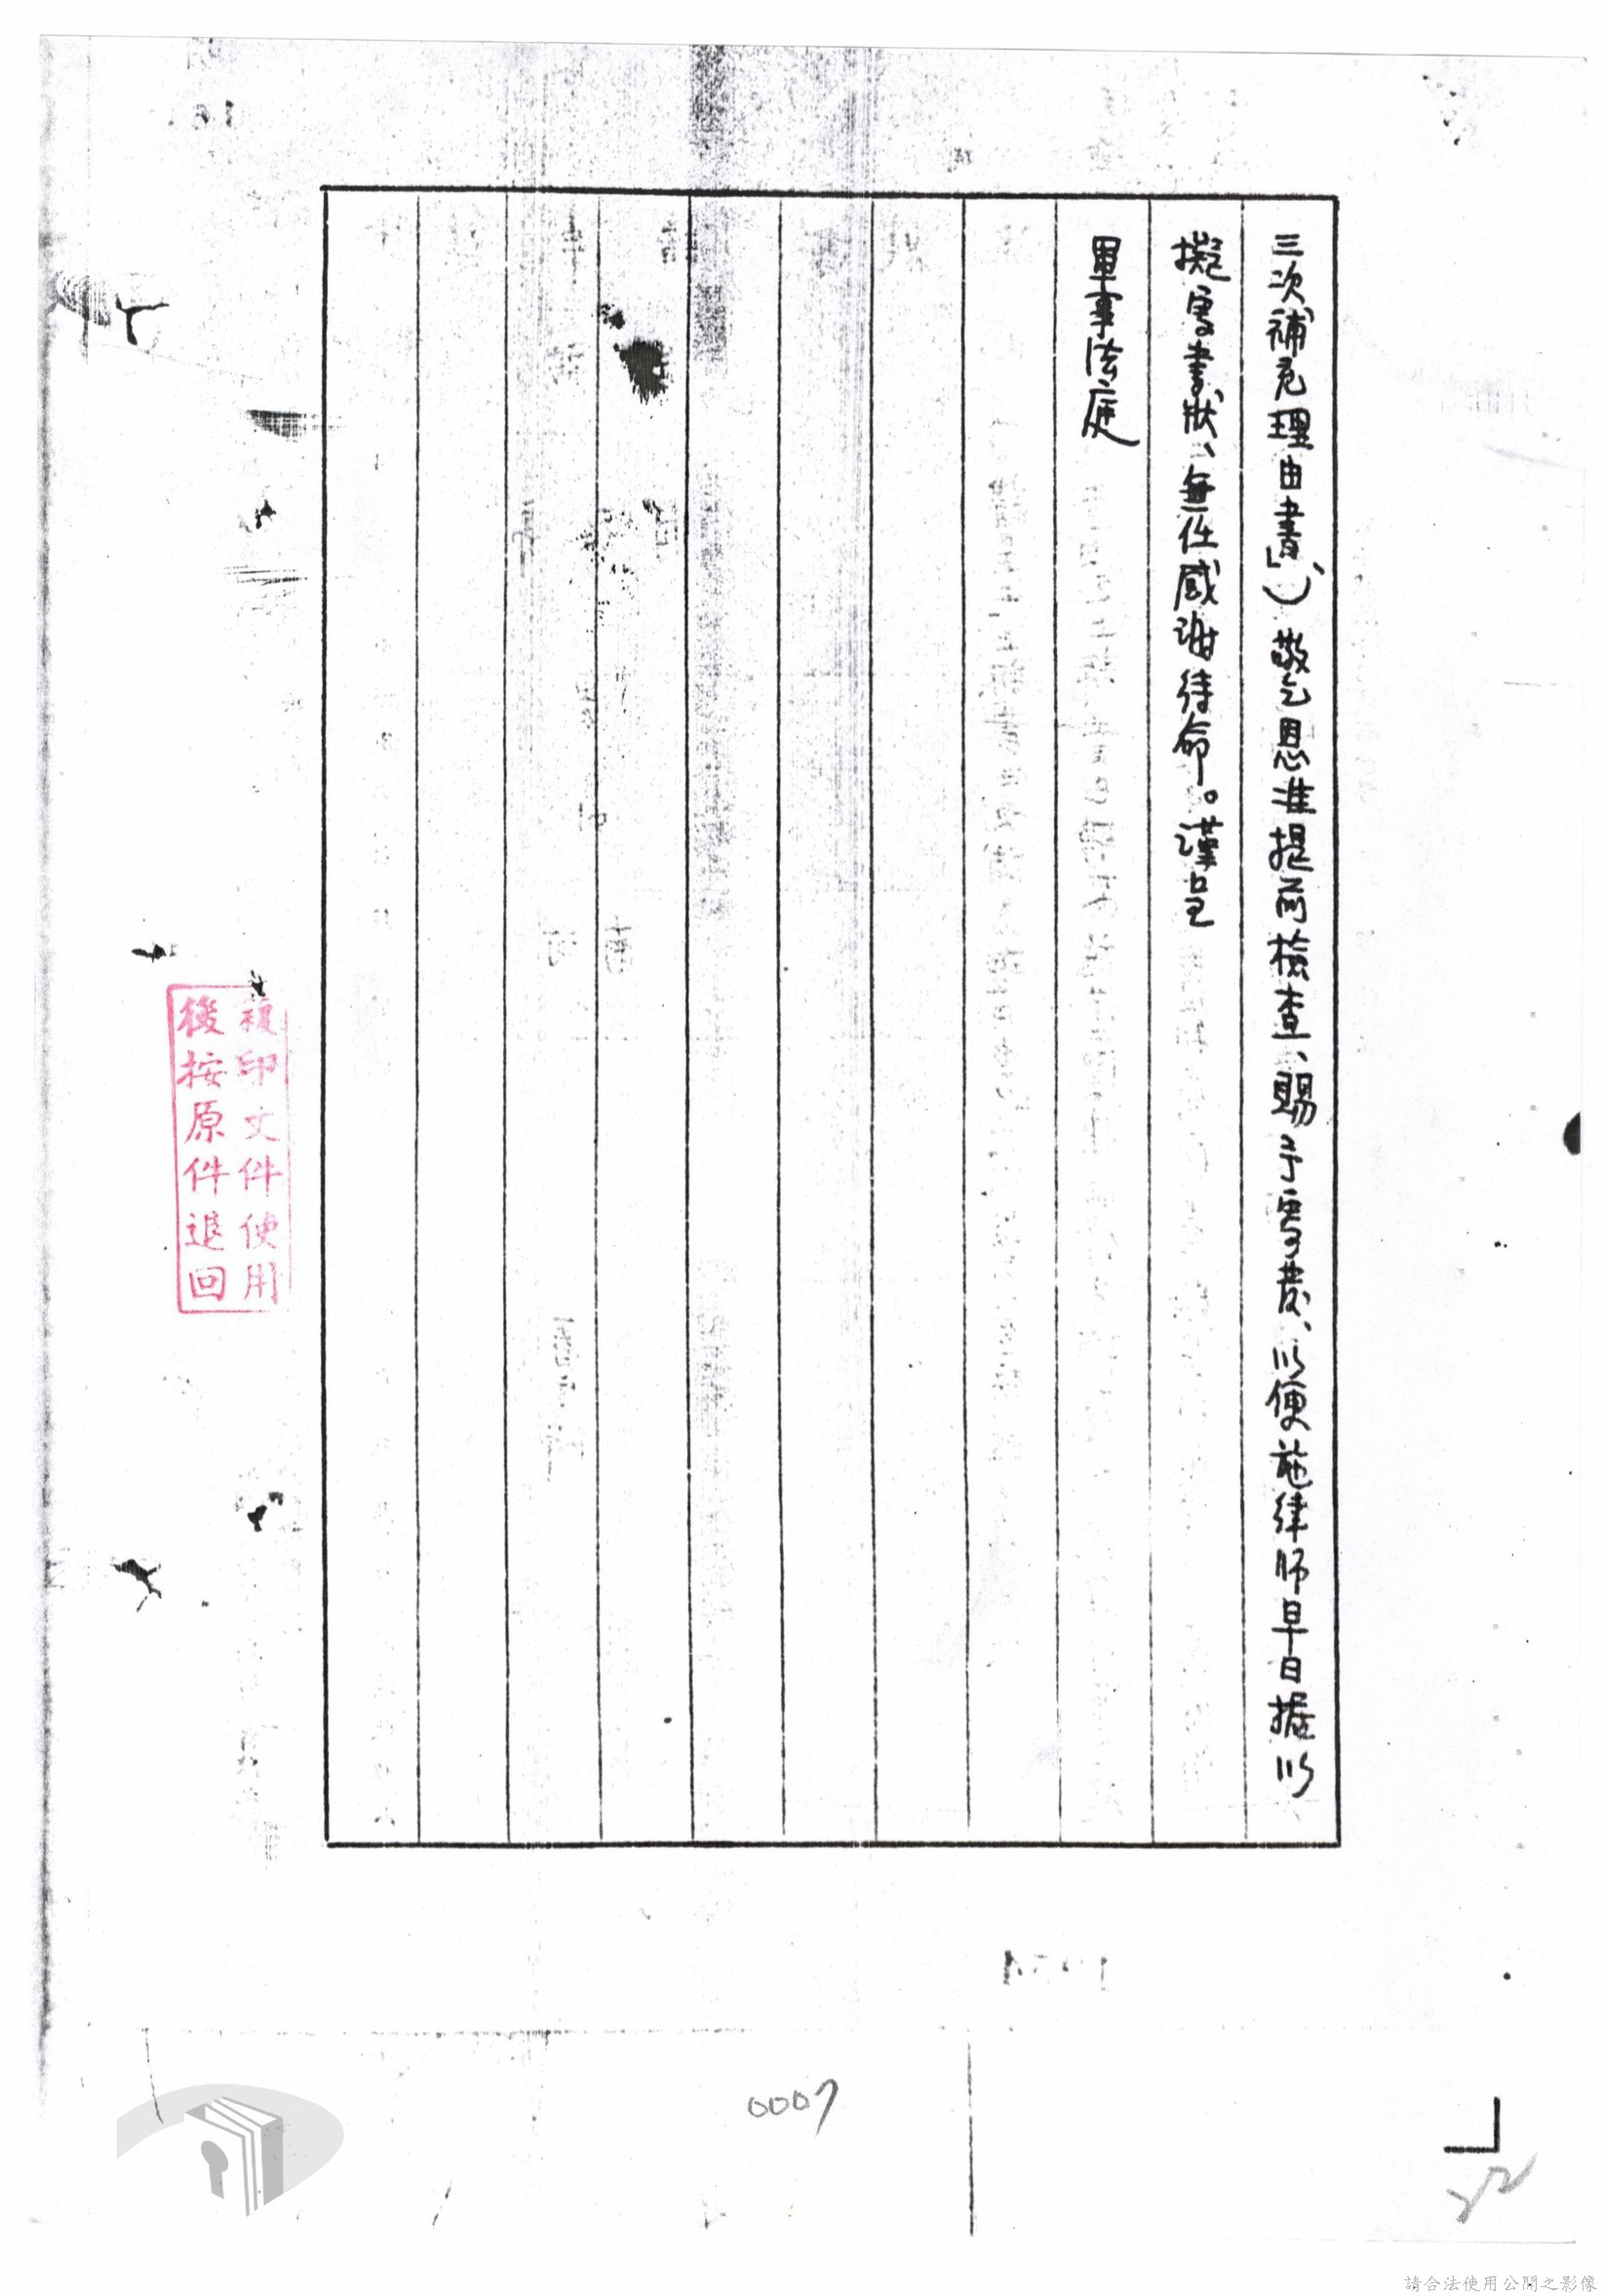 三次補充理由書」、）敬乞恩准提前檢查、賜予寄發、以便施律師早日據以
擬寫書狀、無任感謝待命。謹呈
軍事法庭
複印文件使用
後按原件退回
0007
22
請合法使用公開之影像